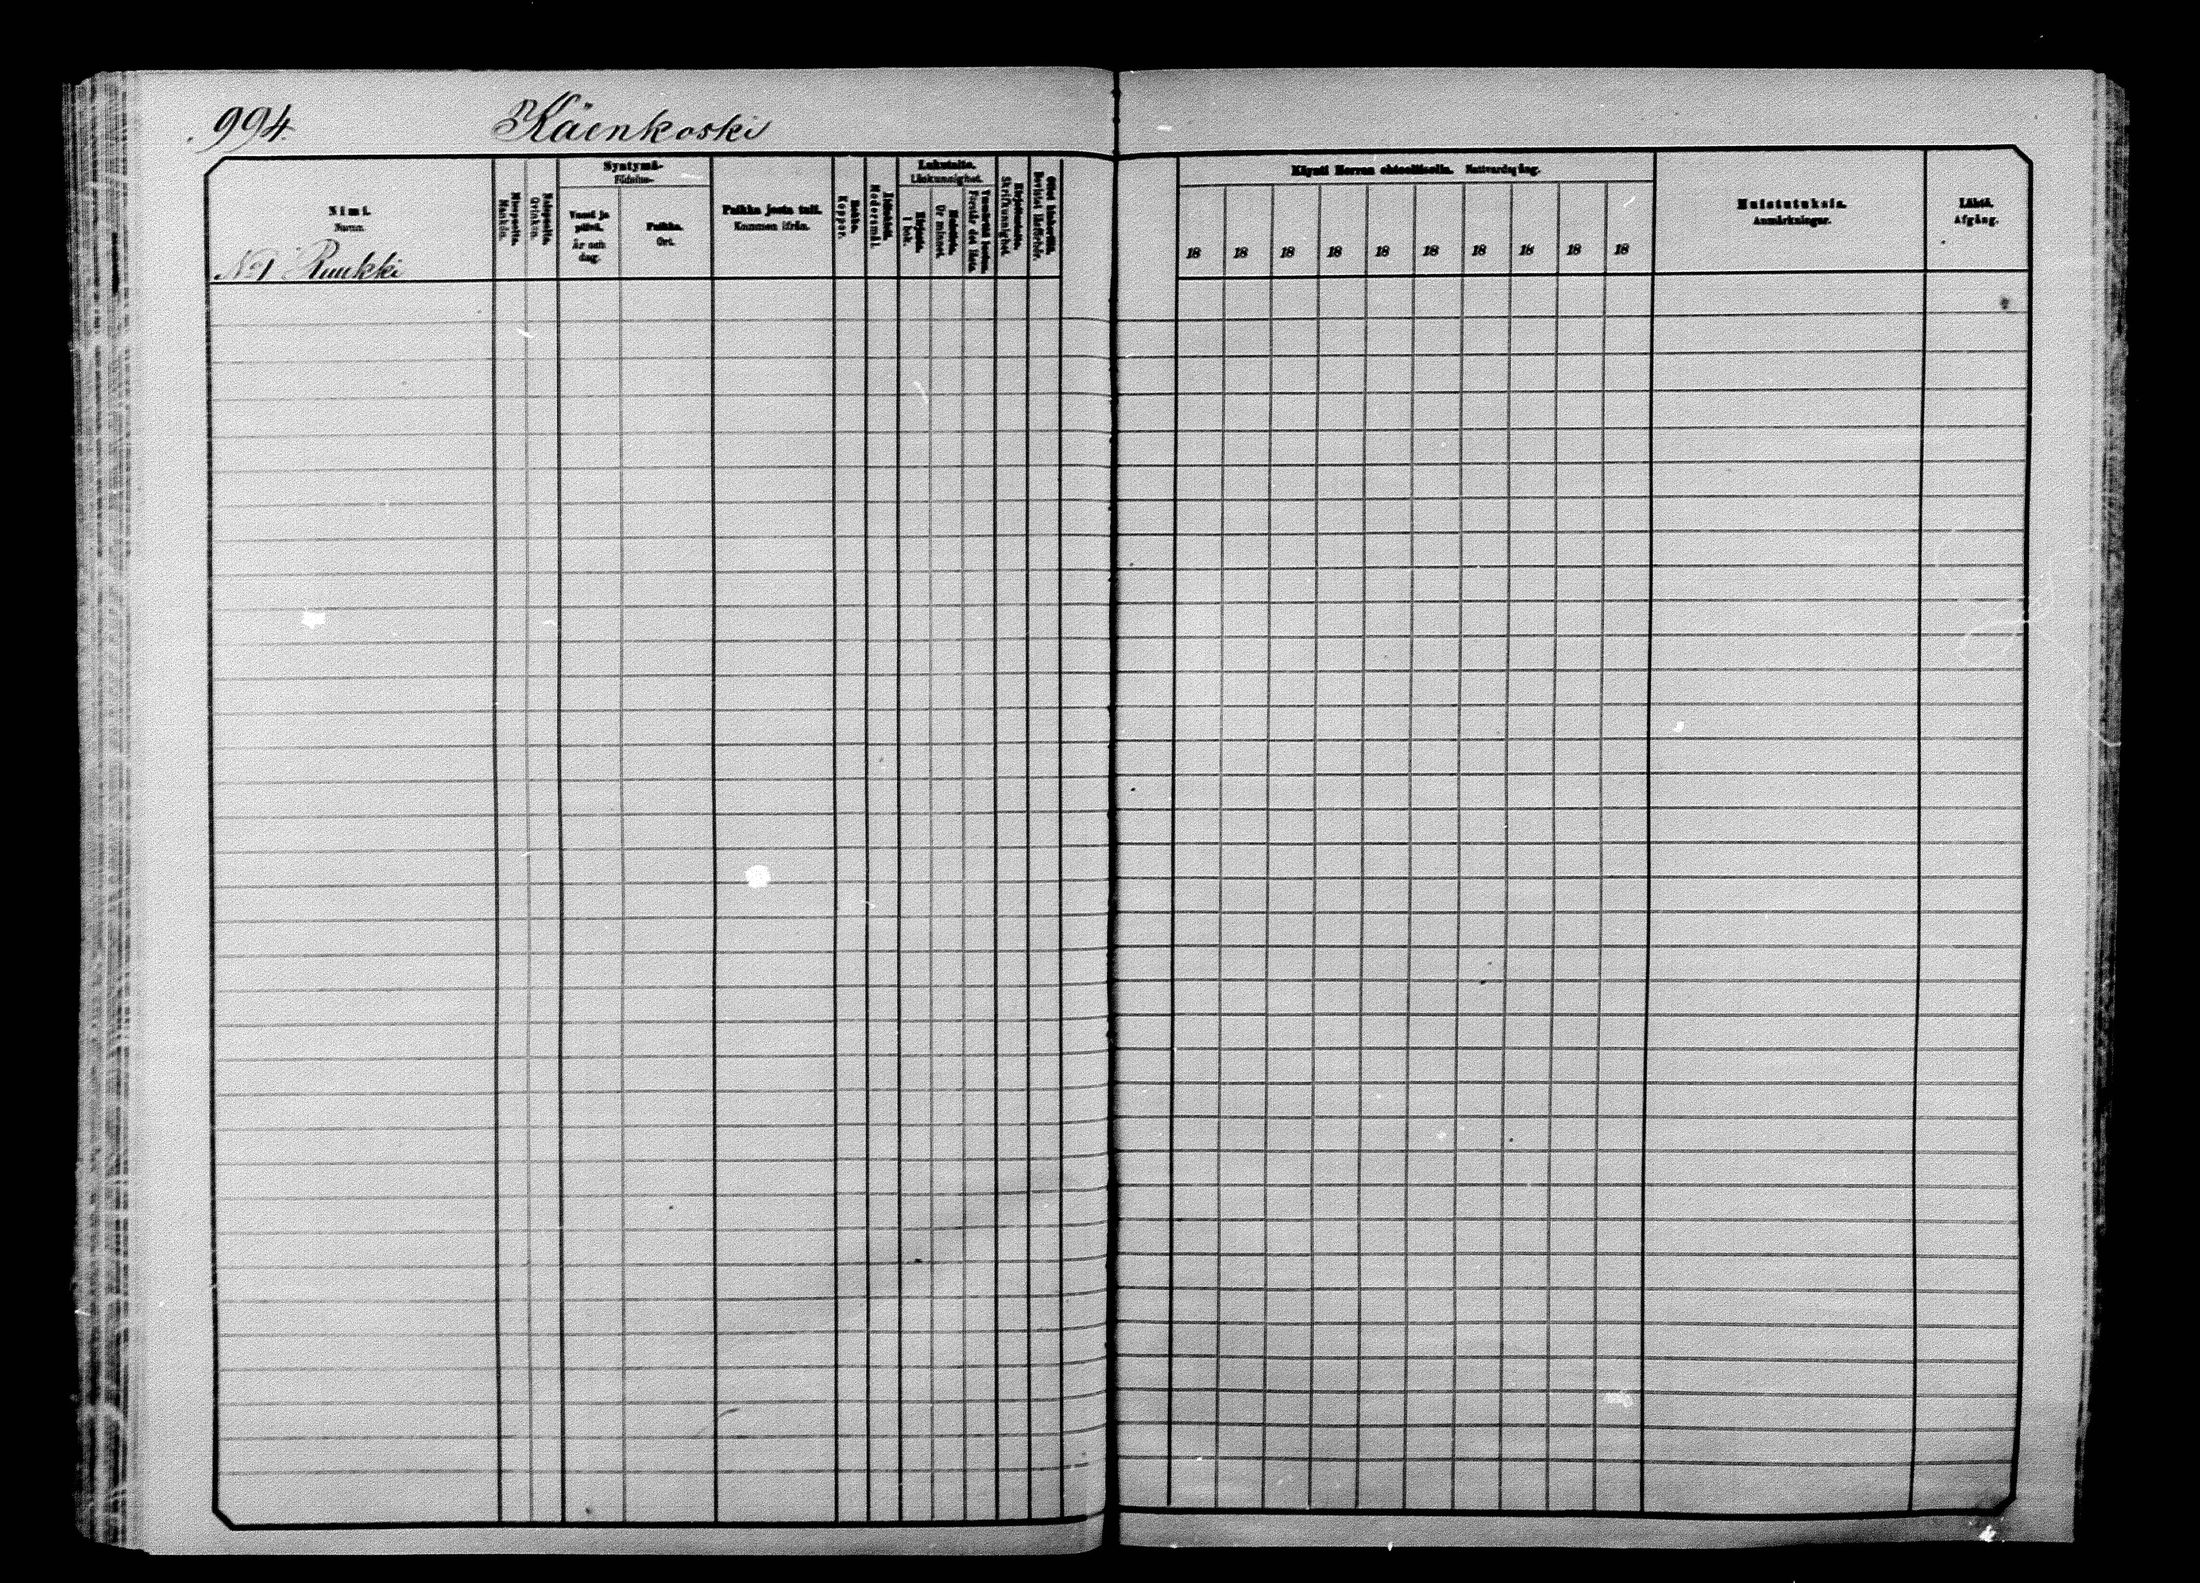 994.
Käenkoski
Nimi.
Namn.
N:o 1 Ruukki
Miespuolia.
Mankön.
Vaimopuolia.
Qvinkön.
Syntymä-
Födelse-
Vuosi ja päivä.
År och dag.
Paikka.
Ort.
Paikka josta tuli.
Kommen ifrån.
Rokko.
Koppor.
Äidinkieli.
Modersmål.
Lukutaito.
Läskunnighet.
Kirjasta.
I bok.
Ulkoa.
Ur minnet.
Ymmärtää lukemansa.
Förstår det lästa.
Kirjoitustaito.
Skrifkunnighet.
Ollut lukukinkerillä.
Bevistat läsförhör.
Käynti Herran ehtoollisella. Nattvardsgång.
18 18 18 18 18 18 18 18 18 18
Muistutuksia.
Anmärkningar.
Lähtö.
Afgång.